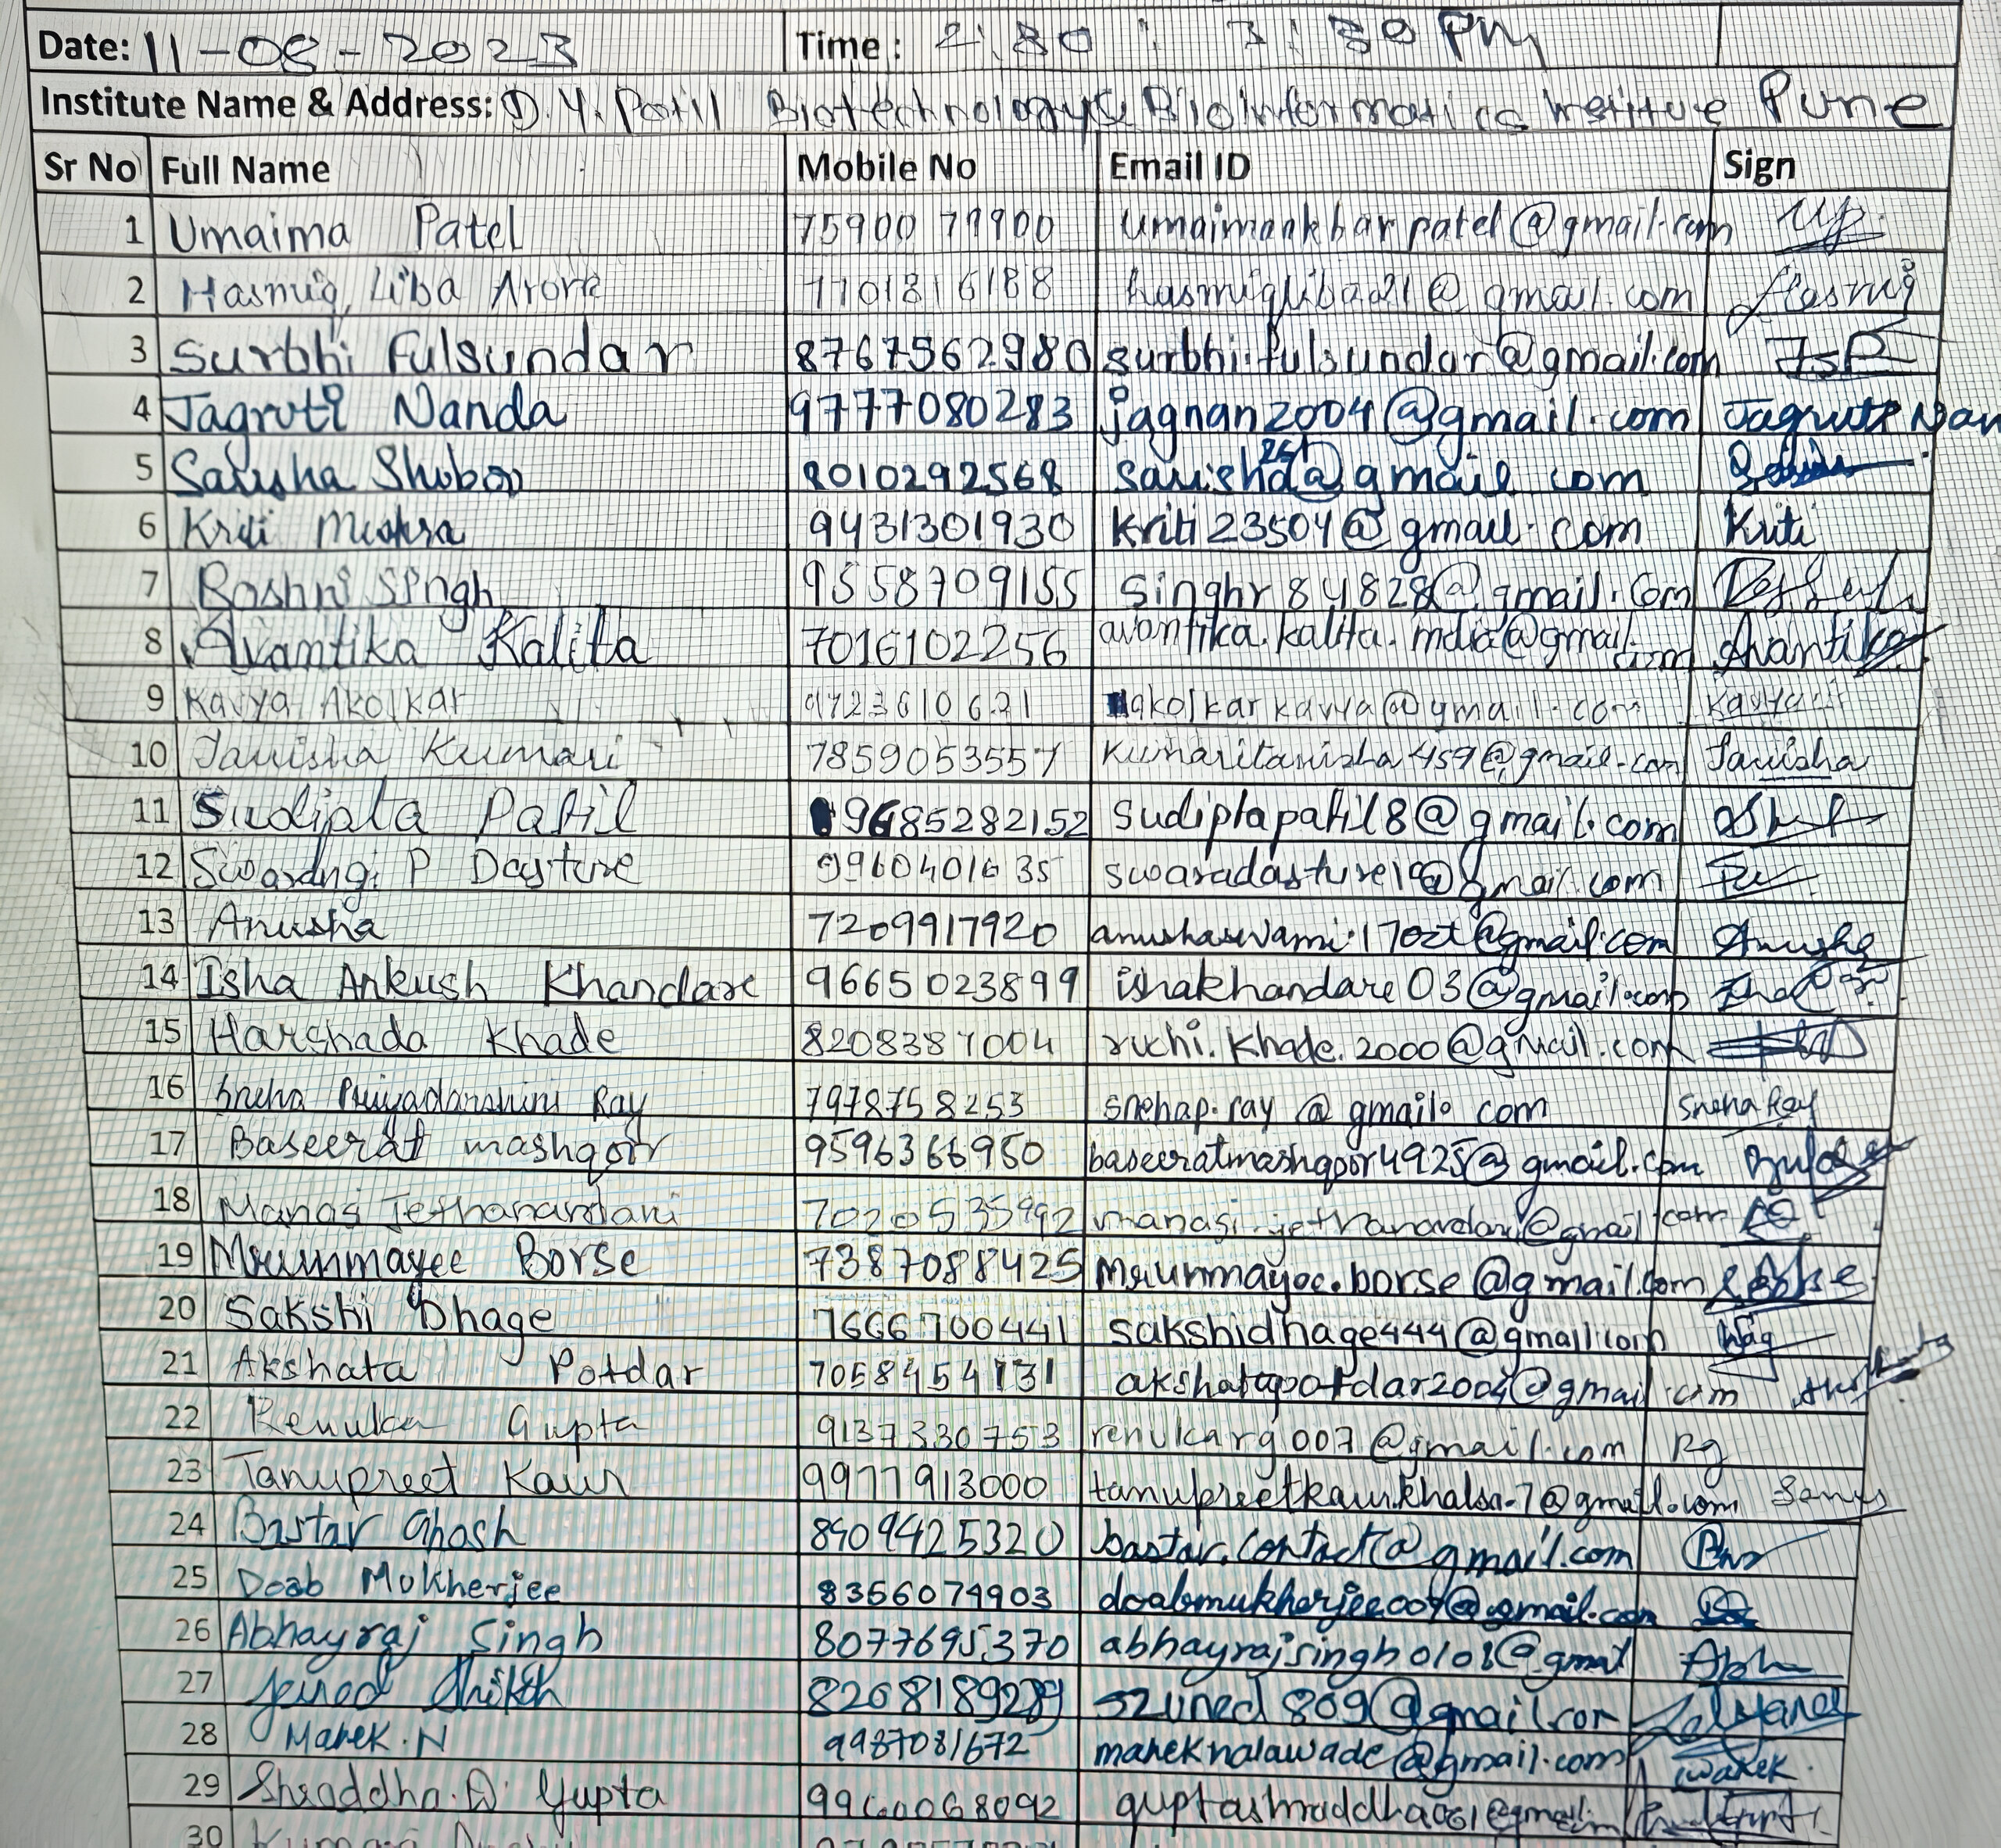 Date: 11-08-2023 Time: 2:30 : 3:30 PM
Institute Name & Address: D.Y. Patil Biotechnology & Bioinformatics Institute Pune
Sr No Full Name Mobile No Email ID Sign
1 Umaima Patel 75900 79900 umaimaakbarpatel@gmail.com UP
2 Hasmig Liba Arora 7701816188 hasmigliba21@gmail.com Hasmig
3 Surbhi Fulsundar 8767562980 surbhi.fulsundar@gmail.com
4 Jagruti Nanda 9777080283 jagnan2004@gmail.com Jagruti Nan
5 8010292568 @gmail.com
6 Kriti Mishra 9431301930 kriti23504@gmail.com Kriti
7 Roshni Singh 9558709155 singhr84828@gmail.com
8 Avantika Kalita 7016102256 avantika.kalita.india@gmail.com Avantika
9 Kavya Akolkar 9723610621 akolkarkavya@gmail.com Kavya
10 Tanisha Kumari 7859053557 kumaritanisha459@gmail.com Tanisha
11 Sudipta Patil 9685282152 sudiptapatil8@gmail.com
12 Swarangi P Dasture 9960401635 swaradasture19@gmail.com
13 Anusha 7209917920 anushaswami.17oct@gmail.com Anusha
14 Isha Ankush Khandare 9665023899 ishakhandare03@gmail.com
15 Harshada Khade 8208387004 ruchi.khade.2000@gmail.com
16 Sneha Priyadarshini Ray 7978758253 snehap.ray@gmail.com Sneha Ray
17 Baseerat mashqoor 9596366950 baseeratmashqoor4925@gmail.com
18 Manasi Jethanandani 7020535992 manasi.jethanandani@gmail.com
19 Mrunmayee Borse 7387088425 mrunmayee.borse@gmail.com
20 Sakshi Dhage 7666700441 sakshidhage444@gmail.com
21 Akshata Potdar 7058454131 akshatapotdar2004@gmail.com
22 Renuka Gupta 9137330753 renukarg007@gmail.com Rg
23 Tanupreet Kaur 9977913000 tanupreetkaurkhalsa.7@gmail.com
24 Bastav Ghosh 8909425320 bastav.contact@gmail.com
25 Doab Mukherjee 8356074903 doabmukherjee009@gmail.com
26 Abhayraj Singh 8077695370 abhayrajsingh0108@gmail
27 8268189289 szuned809@gmail.com
28 Manek.N 9987081672 maneknalawade@gmail.com Manek.
29 Shraddha.D. Gupta 9960068092 guptashraddha061@gmail.com
30 Kumari